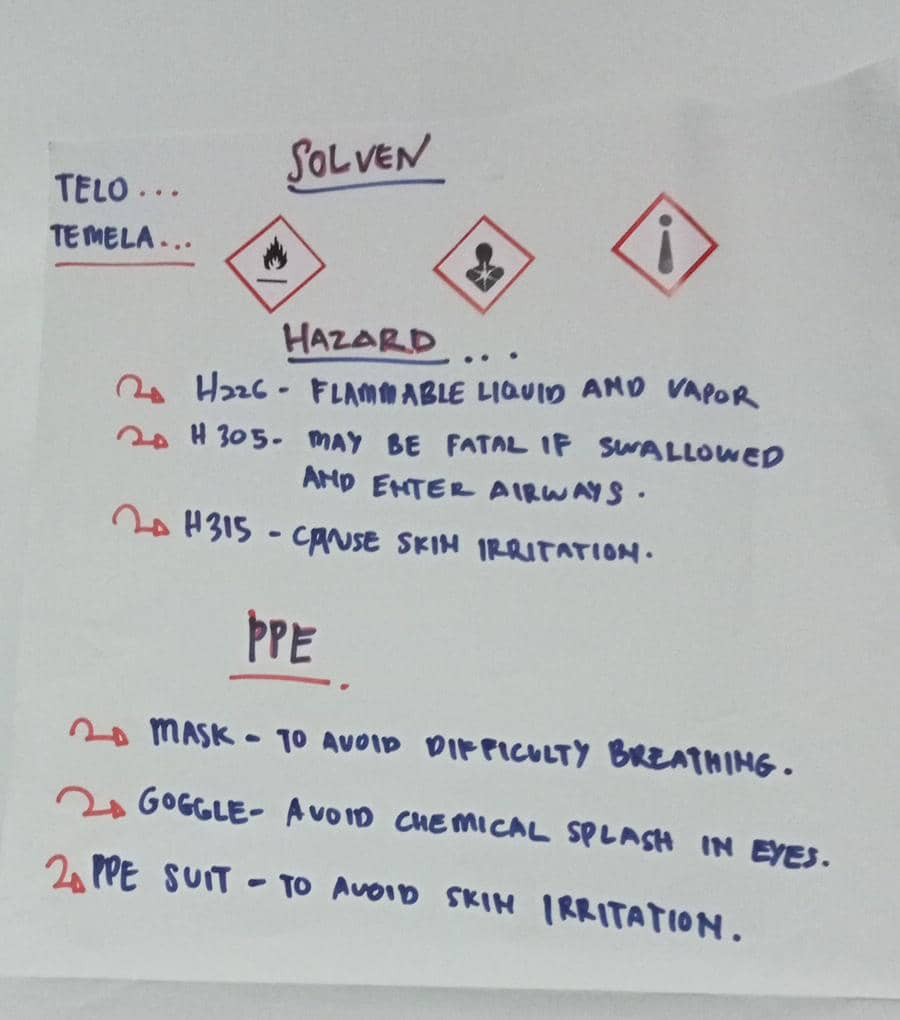 SOLVEN
TELO...
TEMELA...
HAZARD...
H226 - FLAMMABLE LIQUID AND VAPOR
H305- MAY BE FATAL IF SWALLOWED
AND ENTER AIRWAYS.
H315 - CAUSE SKIN IRRITATION.
PPE.
MASK - TO AVOID DIFFICULTY BREATHING.
GOGGLE- AVOID CHEMICAL SPLASH IN EYES.
PPE SUIT - TO AVOID SKIN IRRITATION.